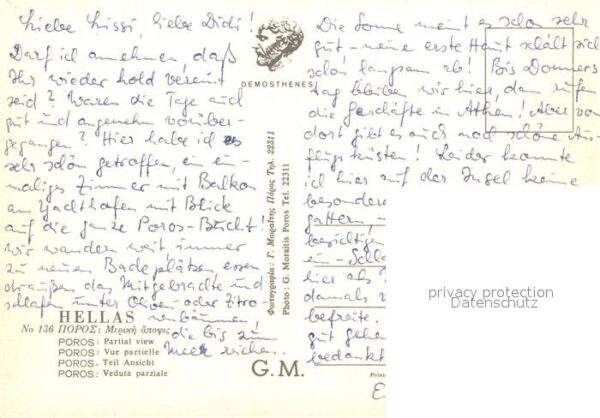 Liebe Sissi, liebe Didi!
Darf ich annehmen, daß
Ihr wieder hold vereint
seid? Waren die Tage auch
gut und angenehm vorüber-
gegangen? Hier habe ich es
sehr schön getroffen, ein ein-
maliges Zimmer mit Balkon
am Yachthafen mit Blick
auf die ganze Poros-Bucht!
Wir wandern weit, immer
zu neuen Badeplätzen, essen
draußen das Mitgebrachte und
schlafen unter Oliven- oder Zitro-
nenbäumen!
die bis zum
Meer reichen.
HELLAS
No 136 ΠΟΡΟΣ: Μερική άποψις
POROS: Partial view
POROS: Vue partielle
POROS: Teil Ansicht
POROS: Veduta parziale
DEMOSTHENES
Φωτογραφία: Γ. Μωραΐτης Πόρος Τηλ. 22311
Photo: G. Moraitis Poros Tel. 22311
G.M.
Die Sonne meint es schon sehr
gut - meine erste Haut schält sich
schon langsam ab! Bis Donners-
tag bleiben wir hier, dann rufen
die Geschäfte in Athen! Aber von
dort gibt es auch noch schöne Aus-
flugsküsten! Leider konnte
ich hier auf der Insel keine
besondere
gattern,
besichtigen
ein-
hier als
damals
befreite.
gut gehen
bedankt
Printe
E
privacy protection
Datenschutz